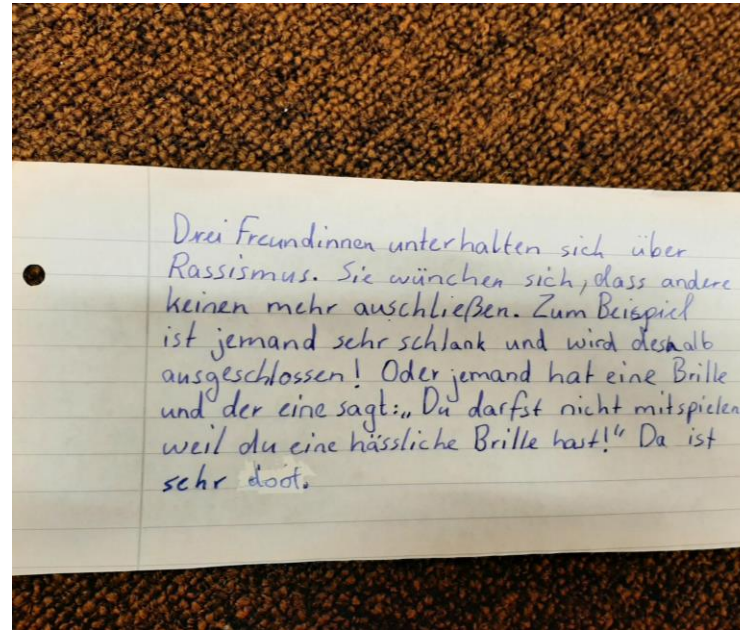 Drei Freundinnen unterhalten sich über
Rassismus. Sie wünchen sich, dass andere
keinen mehr auschließen. Zum Beispiel
ist jemand sehr schlank und wird deshalb
ausgeschlossen! Oder jemand hat eine Brille
und der eine sagt: „Du darfst nicht mitspielen
weil du eine hässliche Brille hast!“ Da ist
sehr doof.